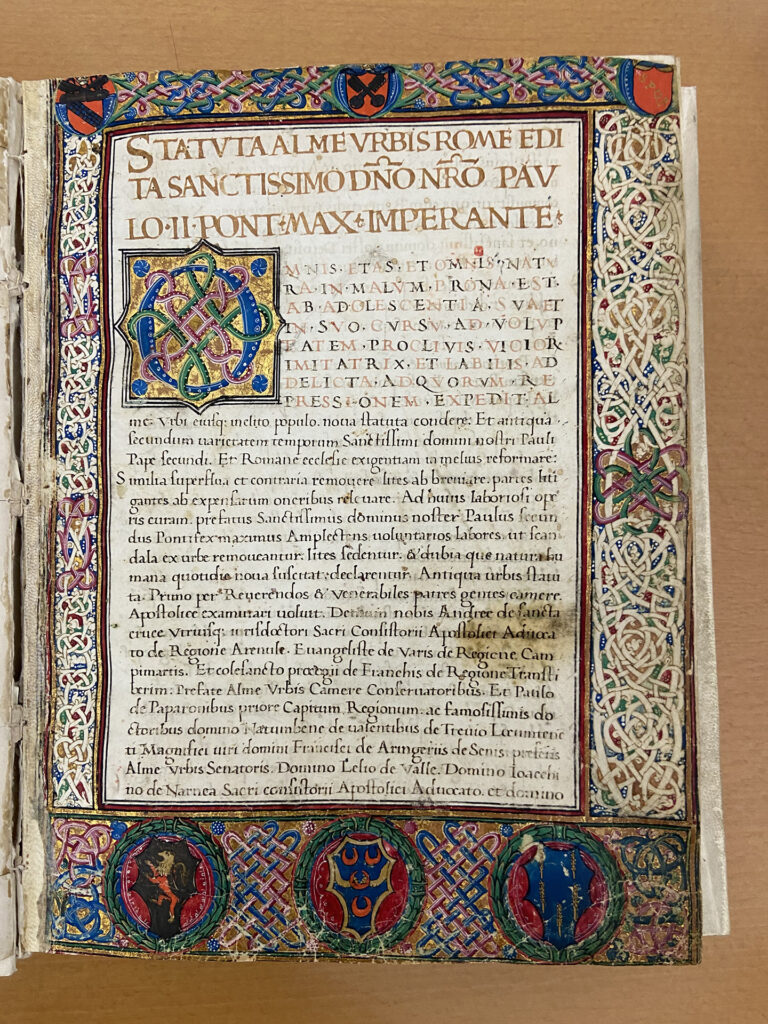 STATVTA ALME VRBIS ROME EDI
TA SANCTISSIMO DÑO NRÕ PAV
LO·II·PONT·MAX·IMPERANTE·
OMNIS·ETAS·ET·OMNIS·NATV
RA·IN·MALVM·PRONA·EST·
AB·ADOLESCENTIA·SVA·ET
IN·SVO·CVRSV·AD·VOLVP
TATEM·PROCLIVIS·VICIOR
IMITATRIX·ET·LABILIS·AD
DELICTA·AD·QVORVM·RE
PRESSIONEM·EXPEDIT·AL
me: Vrbi eiusq; inclito populo. noua statuta condere: Et antiqua
secundum uarietatem temporum Sanctissimi domini nostri Pauli
Pape secundi. Et Romane ecclesie exigentiam in melius reformare:
Similia superflua et contraria remouere lites ab breuiare. partes liti
gantes ab expensarum oneribus releuare. Ad huius laboriosi ope
ris curam. prefatus Sanctissimus dominus noster Paulus secun
dus Pontifex maximus Amplectens uoluntarios labores. ut scan
dala ex urbe remoueantur. lites sedentur. & dubia que natura hu
mana quotidie noua suscitat. declarentur. Antiqua urbis statu
ta. Primo per Reuerendos & Venerabiles patres gentes camere
Apostolice examinari uoluit. Demum nobis Andree de sancta
cruce Vtriusq; iurisdoctori Sacri Consistorii Apostolici Aduoca
to de Regione Arenule. Euangeliste de Varis de Regione Cam
pimartis. Et colesancto de Franchis de Regione Transti
berim: Prefate Alme Vrbis Camere Conseruatoribus. Et Paulo
de Paparonibus priore Capitum Regionum. ac famosissimis do
ctoribus domino Natumbene de ualentibus de Treuio Locumtenen
ti Magnifici uiri domini Francisci de Aringeriis de Senis. presentis
Alme Vrbis Senatoris. Domino Lelio de Valle. Domino Ioacchi
no de Narnea Sacri consistorii Apostolici Aduocato. et domino